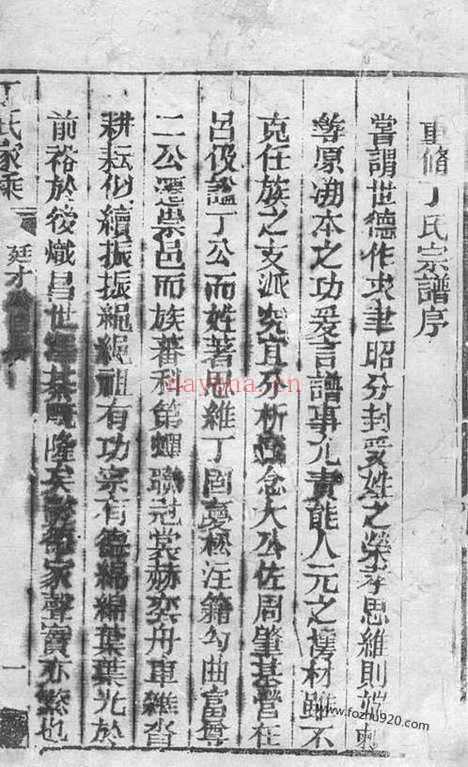 重脩丁氏宗譜序
嘗謂世德作求聿昭分封受姓之榮孝思維則端賴
尊原溯本之功爰言譜事允責能人元之樸材雖不
克任族之支派究宜分析念大公佐周肇基營在
呂伋諡丁公而姓著維丁固夢松注籍勾曲富尊
二公遷崇邑而族蕃科第蟬聯冠裳赫奕舟車雜沓
耕耘似續振振繩繩祖有功宗有德綿綿葉葉光於
前裕於後熾昌世隆矣家聲實亦繁也
丁氏家乘
廷才
一
nayana.cn
www.fozhu920.com